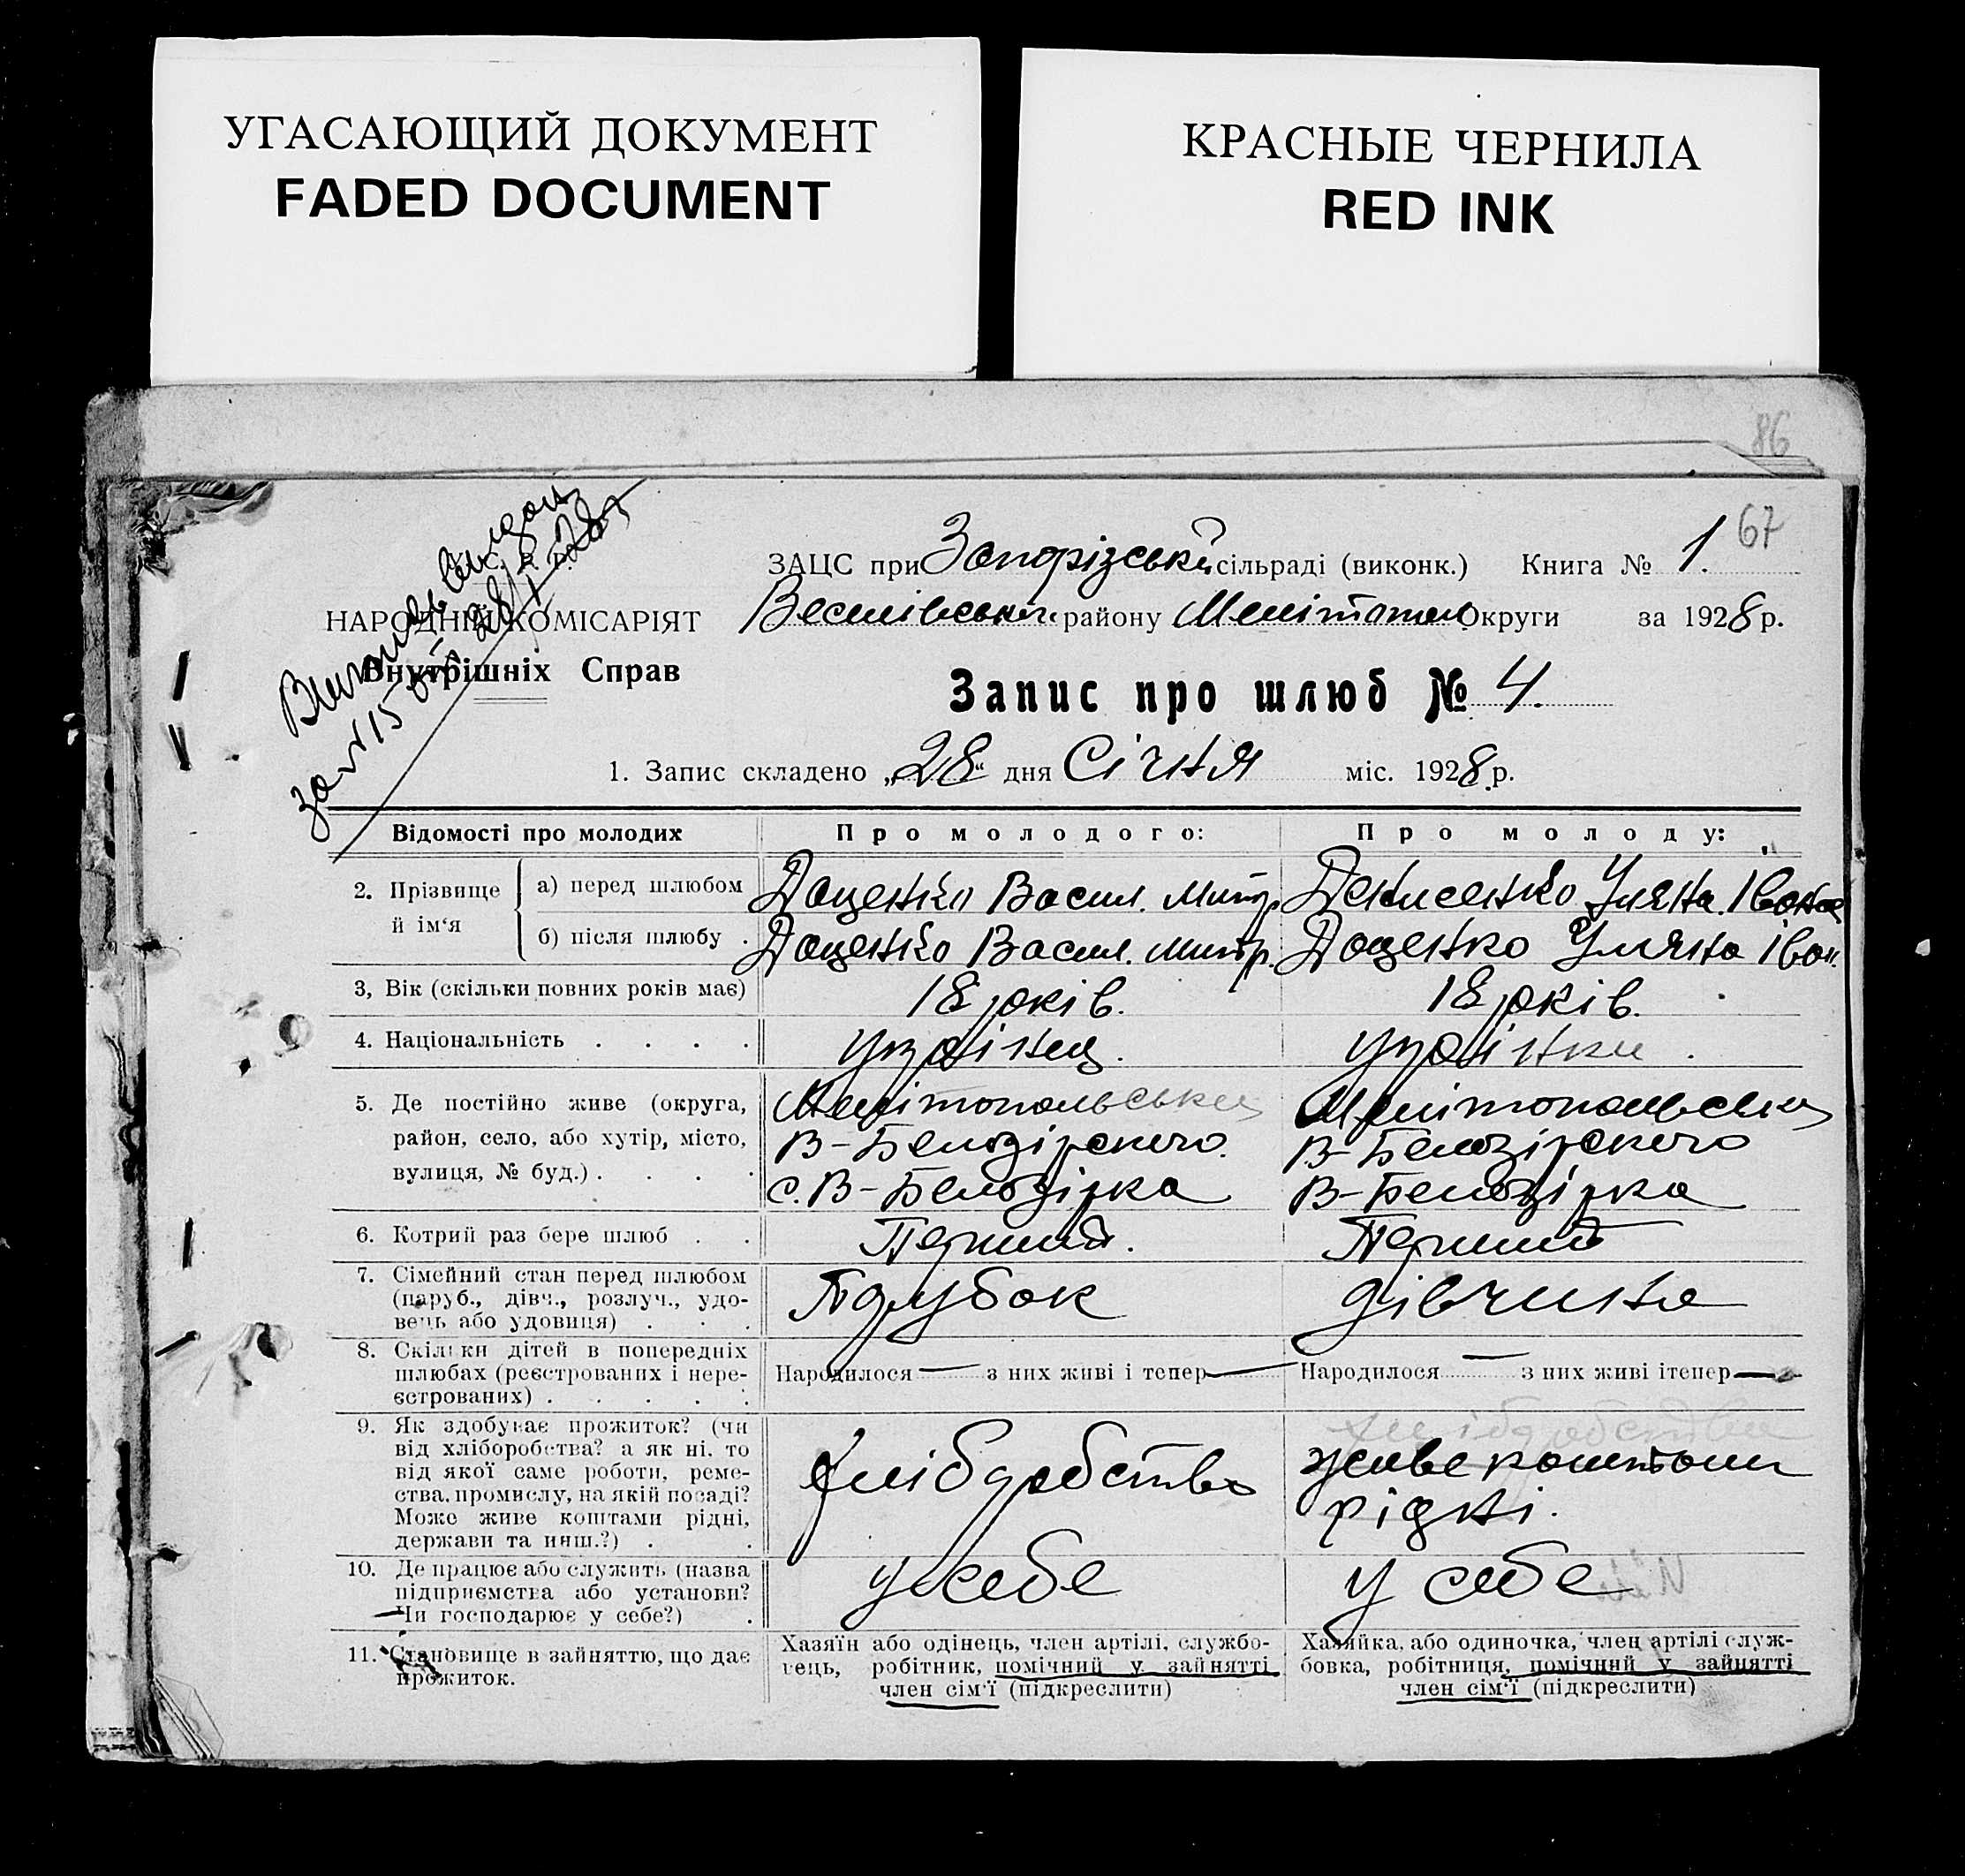 УГАСАЮЩИЙ ДОКУМЕНТ
FADED DOCUMENT
КРАСНЫЕ ЧЕРНИЛА
RED INK
86
67
ЗАЦС при Запорізській сільраді (виконк.) Книга № 1.
НАРОДНІЙ КОМІСАРІЯТ
Внутрішніх Справ
Веселівського району Мелітопол Округи за 1928 р.
Запис про шлюб № 4.
1. Запис складено „28“ дня Січня міс. 1928 р.
Відомості про молодих
Про молодого:
Про молоду:
2. Прізвище й ім‘я
а) перед шлюбом
Доценко Васил. Митр.
Денисенко Уляна Іванов
б) після шлюбу .
Доценко Васил. Митр.
Доценко Уляна Іван.
3, Вік (скільки повних років має)
18 років.
18 років.
4. Національність . . . .
українец.
українки.
5. Де постійно живе (округа,
район, село, або хутір, місто,
вулиця, № буд.) . . . .
Мелітопольськи
В-Белозірского.
с. В-Белозірка
Мелітопольськи
В-Белозірского
В-Белозірка
6. Котрий раз бере шлюб . .
Перший.
Перший
7. Сімейний стан перед шлюбом
(паруб., дівч., розлуч., удо-
вець або удовиця) . . .
Парубок
дівчина
8. Скільки дітей в попередніх
шлюбах (реєстрованих і нере-
єстрованих) . . . . .
Народилося — з них живі і тепер —
Народилося — з них живі і тепер —
9. Як здобуває прожиток? (чи
від хліборобства? а як ні, то
від якої саме роботи, реме-
ства, промислу, на якій посаді?
Може живе коштами рідні,
держави та инш.?) . .
хліборобство
живе коштом
рідні.
10. Де працює або служить (назва
підприємства або установи?
Чи господарює у себе?) .
у себе
у себе
11. Становище в зайняттю, що дає
прожиток.
Хазяїн або одінець, член артілі, службо-
вець, робітник, помічний у зайнятті
член сім‘ї (підкреслити)
Хазяйка, або одиночка, член артілі служ-
бовка, робітниця, помічний у зайнятті
член сім‘ї (підкреслити)